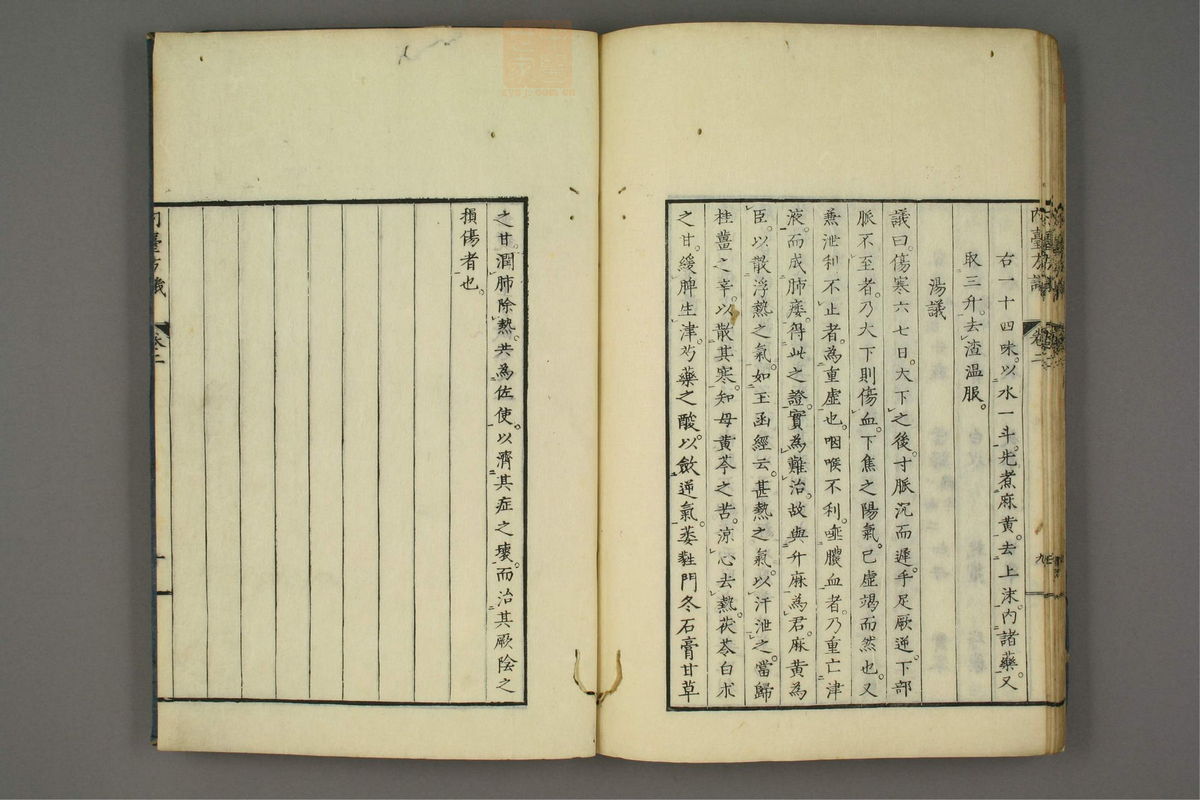 內臺方議 卷二 九
右一十四味。以水一斗。先煮麻黃。去上沫。內諸藥。又
取三升。去渣溫服。
湯議
議曰。傷寒六七日。大下之後。寸脈沉而遲。手足厥逆。下部
脈不至者。乃大下則傷血。下焦之陽氣。已虛竭而然也。又
兼泄利不止者。為重虛也。咽喉不利。唾膿血者。乃重亡津
液。而成肺痿。得此之證。實為難治。故與升麻為君。麻黃為
臣。以散浮熱之氣。如玉函經云。甚熱之氣。以汗泄之。當歸
桂薑之辛。以散其寒。知母黃芩之苦。涼心去熱。茯苓白朮
之甘。緩脾生津。芍藥之酸。以斂逆氣。萎蕤門冬石膏甘草
之甘。潤肺除熱。共為佐使。以濟其症之壞。而治其厥陰之
損傷者也。
內臺方議 卷二 十